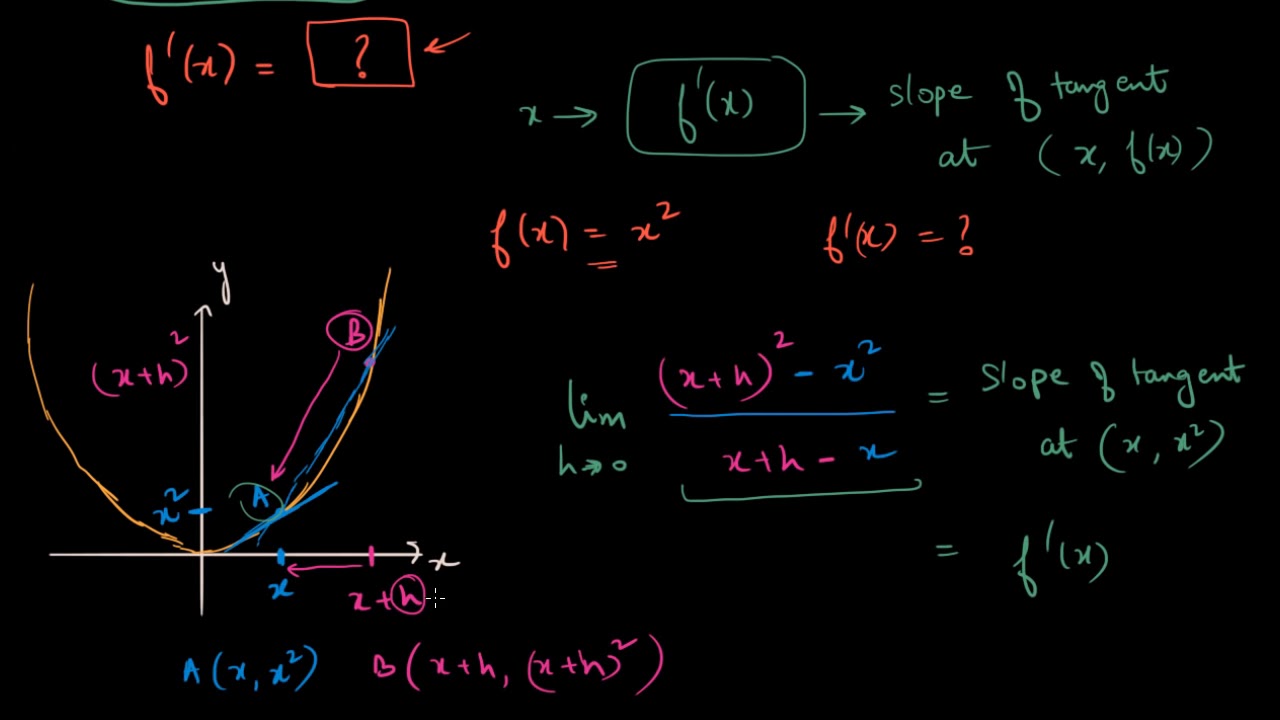 f'(x) = ?
x → f'(x) → slope of tangent
at (x, f(x))
f(x) = x² f'(x) = ?
y
(x+h)²
B
A
x²
x
x
x+h
A(x, x²) B(x+h, (x+h)²)
lim h→0
(x+h)² - x²
x+h - x
= Slope of tangent
at (x, x²)
= f'(x)